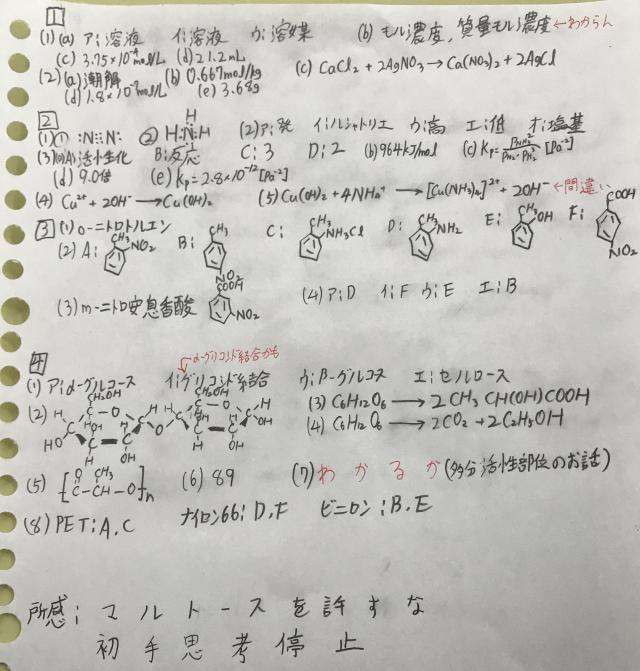 1
(1) (a) ア:溶液 イ:溶液 ウ:溶媒 (b) モル濃度, 質量モル濃度 ←わからん
(c) 3.75×10⁻⁴mol/L (d) 21.2mL
(2) (a) 潮解 (b) 0.667mol/kg (c) CaCl₂ + 2AgNO₃ → Ca(NO₃)₂ + 2AgCl
(d) 1.8×10⁻²mol/L (e) 3.68g
2
(1) ① :N≡N: ② H:N:H H (2) ア:発 イ:ルシャトリエ ウ:高 エ:低 オ:塩基
(3) (a) A:活性化 B:反応 C:3 D:2 (b) 964kJ/mol (c) Kp= [Pa⁻²]
(d) 9.0倍 (e) Kp=2.8×10⁻¹²[Pa⁻²]
(4) Cu²⁺ + 2OH⁻ → Cu(OH)₂ (5) Cu(OH)₂ + 4NH₄⁺ → [Cu(NH₃)₄]²⁺ + 2OH⁻ ←間違い
3 (1) o-ニトロトルエン
(2) A: CH₃ NO₂ B: CH₃ NO₂ C: CH₃ NH₃Cl D: CH₃ NH₂ E: CH₃ OH F: COOH NO₂
(3) m-ニトロ安息香酸 COOH NO₂ (4) ア:D イ:F ウ:E エ:B
4
α-グリコシド結合かも
(1) ア:α-グルコース イ:グリコシド結合 ウ:β-グルコース エ:セルロース
(2) CH₂OH CH₂OH (3) C₆H₁₂O₆ → 2CH₃CH(OH)COOH
(4) C₆H₁₂O₆ → 2CO₂ + 2C₂H₅OH
(5) [C-CH-O]n O CH₃ (6) 89 (7) わかるか (多分活性部位のお話)
(8) PET:A,C ナイロン66:D,F ビニロン:B,E
所感:マルトースを許すな
初手思考停止